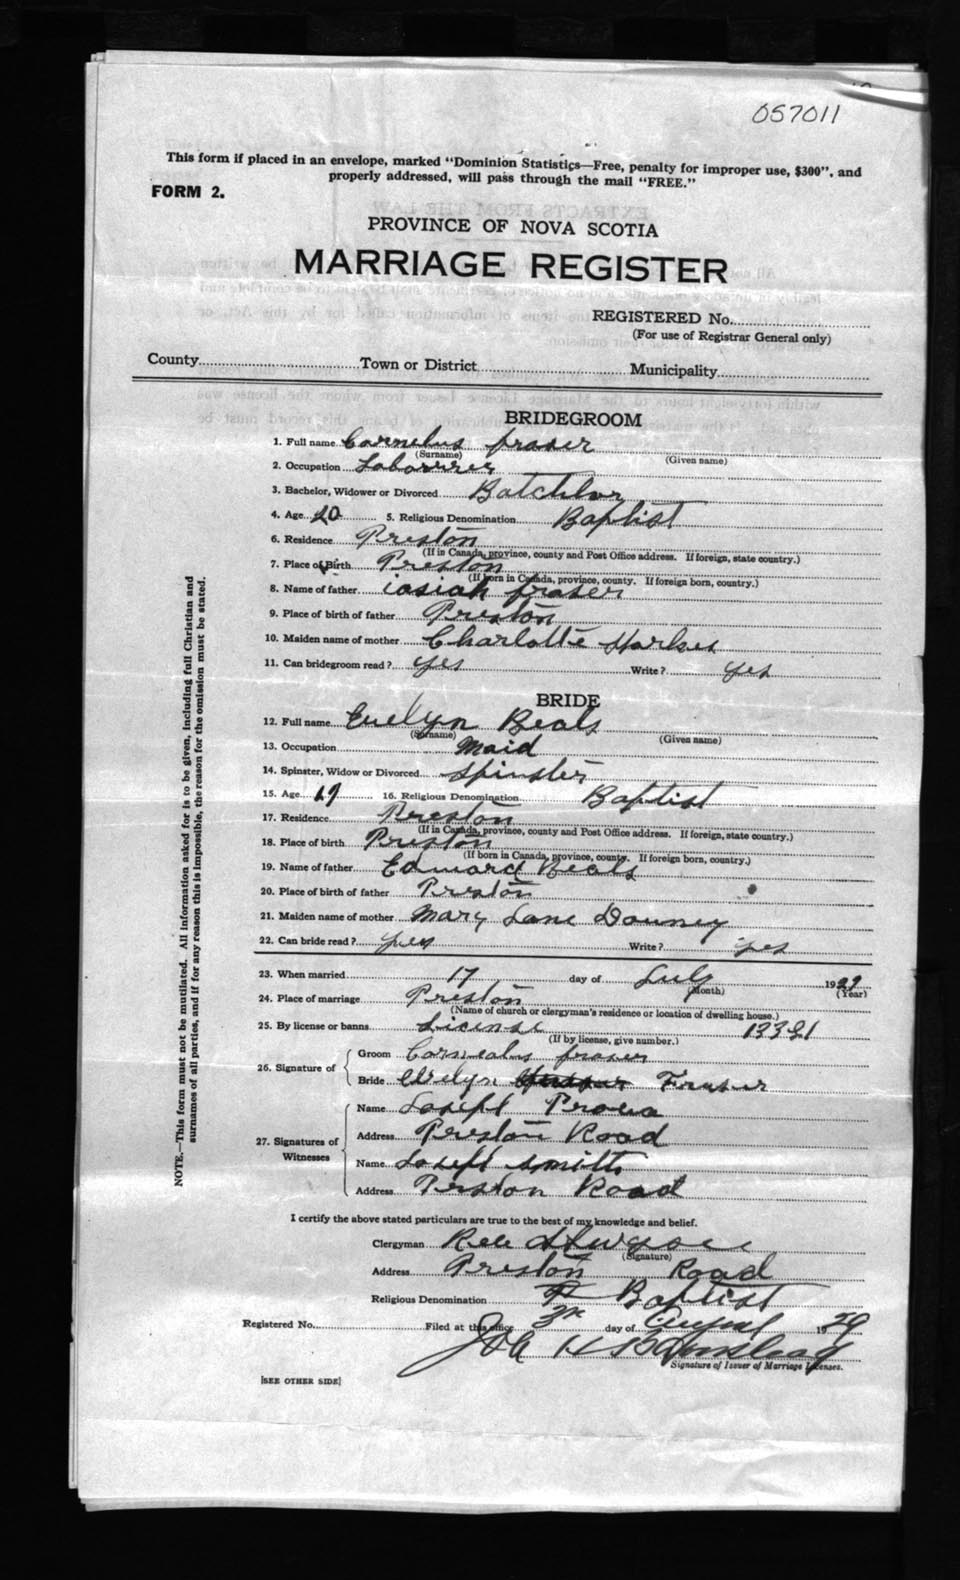 057011
This form if placed in an envelope, marked "Dominion Statistics—Free, penalty for improper use, $300", and
properly addressed, will pass through the mail "FREE."
FORM 2.
PROVINCE OF NOVA SCOTIA
MARRIAGE REGISTER
REGISTERED No.
(For use of Registrar General only)
County Town or District Municipality
BRIDEGROOM
1. Full name Cornelus fraser
(Surname) (Given name)
2. Occupation Laborrer
3. Bachelor, Widower or Divorced Batchlor
4. Age 20 5. Religious Denomination Baptist
6. Residence Preston
(If in Canada, province, county and Post Office address. If foreign, state country.)
7. Place of Birth Preston
(If born in Canada, province, county. If foreign born, country.)
8. Name of father iosiah fraser
9. Place of birth of father Preston
10. Maiden name of mother Charlotte
11. Can bridegroom read? yes Write? yes
BRIDE
12. Full name Evelyn Beals
(Surname) (Given name)
13. Occupation Maid
14. Spinster, Widow or Divorced Spinster
15. Age 19 16. Religious Denomination Baptist
17. Residence Preston
(If in Canada, province, county and Post Office address. If foreign, state country.)
18. Place of birth Preston
(If born in Canada, province, county. If foreign born, country.)
19. Name of father Edward Beals
20. Place of birth of father Preston
21. Maiden name of mother Mary Lane Downey
22. Can bride read? yes Write? yes
23. When married 17 day of July 1929
(Month) (Year)
24. Place of marriage Preston
(Name of church or clergyman's residence or location of dwelling house.)
25. By license or banns License 13321
(If by license, give number.)
26. Signature of
Groom Cornealus fraser
Bride Evelyn Fraser
27. Signatures of Witnesses
Name Joseph
Address Preston Road
Name Joseph Smith
Address Preston Road
I certify the above stated particulars are true to the best of my knowledge and belief.
Clergyman
(Signature)
Address Preston Road
Religious Denomination Baptist
Registered No. Filed at this office day of August 1929
Signature of Issuer of Marriage Licenses.
[SEE OTHER SIDE]
NOTE.—This form must not be mutilated. All information asked for is to be given, including full Christian and
surnames of all parties, and if for any reason this is impossible, the reason for the omission must be stated.